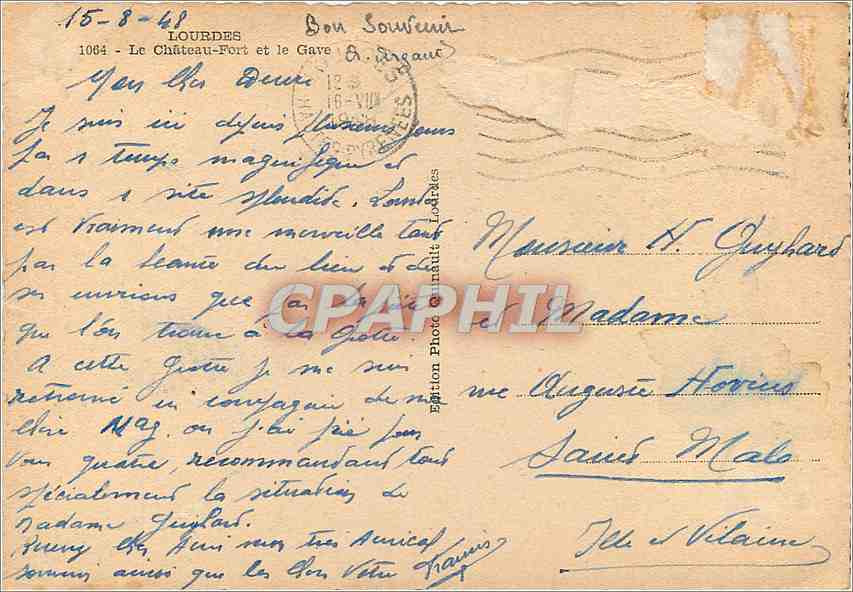 15-8-48
Bon Souvenir
LOURDES
1064 - Le Château-Fort et le Gave
12
16-VIII
PYRENEES
Mon cher
Je suis ici depuis plusieurs jours
par 1 temps magnifique et
dans 1 site splendide. Lourdes
est vraiment une merveille tant
par la beauté du lieu et de
ses environs que par la
que l'on trouve à la Grotte.
A cette Grotte je me suis
retrouvé en compagnie de
chère Mag. où j'ai prié pour
vous quatre, recommandant tout
spécialement la situation de
Madame Guyhard.
cher Ami mon très Amical
souvenir ainsi que les chers Votre Francis
Edition Photo Lourdes
CPAPHIL
Monsieur H. Guyhard
et Madame
rue Auguste Hovius
Saint Malo
Ille et Vilaine